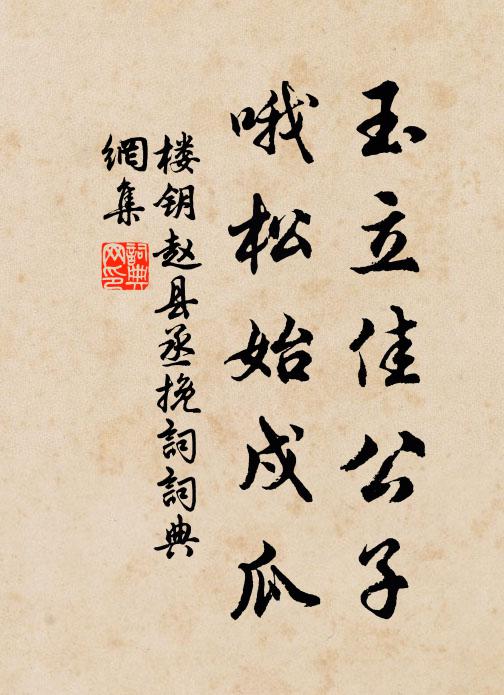 玉立佳公子
哦松始戍瓜
楼钥赵县丞挽詞詞典
網集
詞典
网印